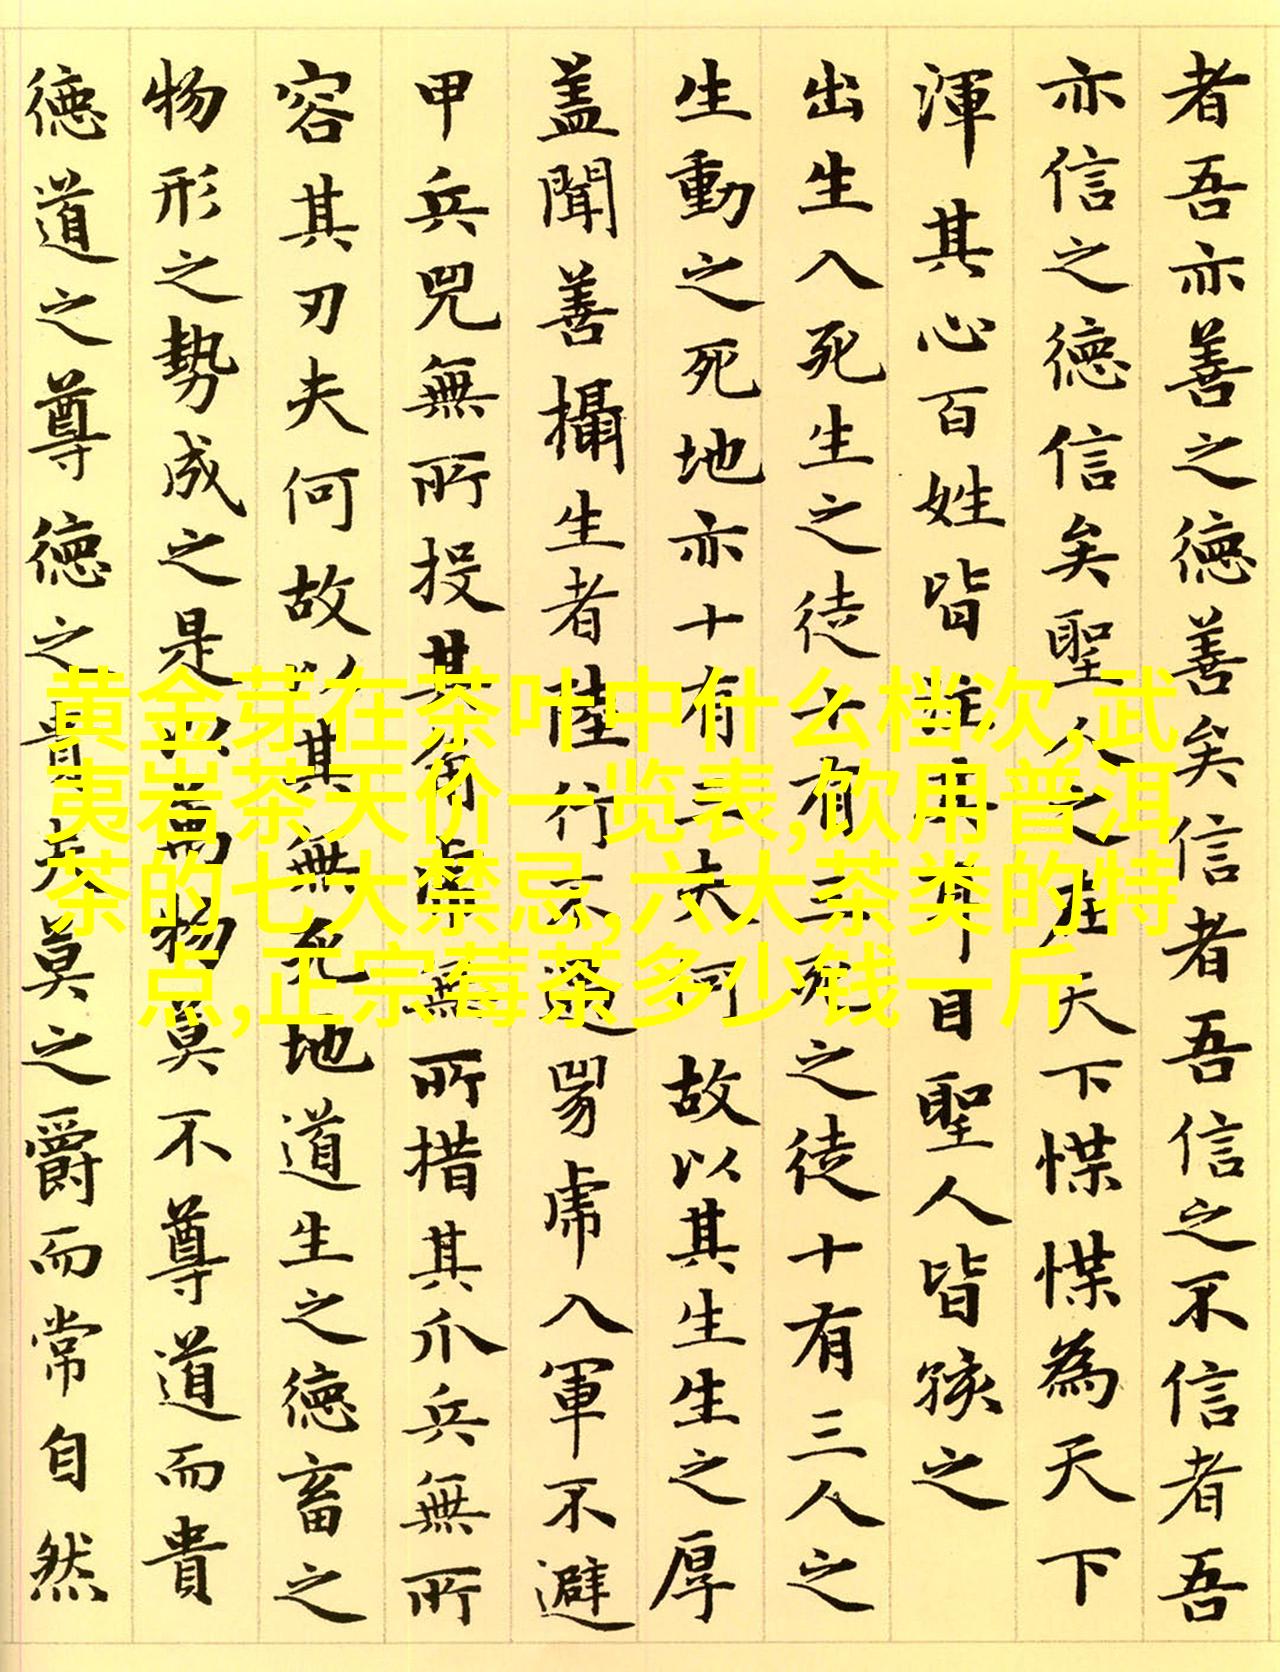 者吾亦善之德善矣信者吾信之不信者吾
亦信之德信矣聖人之在天下惵惵為天下
渾其心百姓皆其耳目聖人皆孩之
出生入死生之徒十有三死之徒十有三人之
生動之死地亦十有三夫何故以其生生之厚
蓋聞善攝生者陸行不遇兕虎入軍不避
甲兵兕無所投其角虎無所措其爪兵無所
容其刃夫何故以其無死地道生之德畜之
物形之勢成之是以萬物莫不尊道而貴
德道之尊德之貴夫莫之爵而常自然
黄金芽在茶叶中什么档次,武
夷岩茶天价一览表,饮用普洱
茶的七大禁忌,六大茶类的特
点,正宗莓茶多少钱一斤